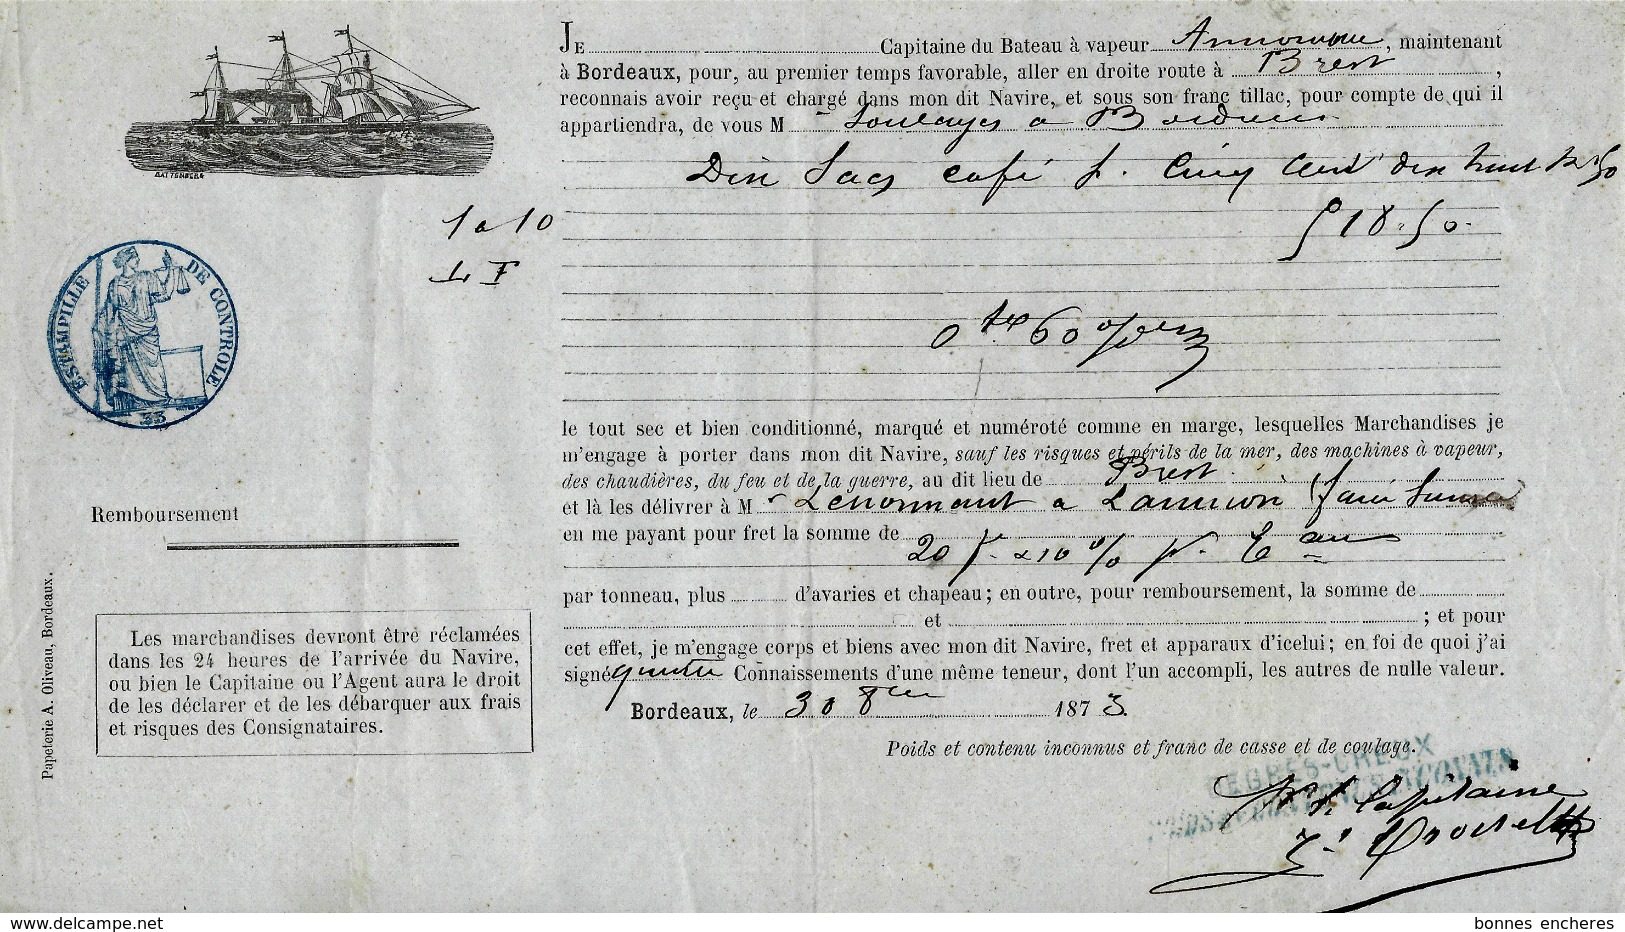 JE Capitaine du Bateau à vapeur Armorique, maintenant
à Bordeaux, pour, au premier temps favorable, aller en droite route à Brest,
reconnais avoir reçu et chargé dans mon dit Navire, et sous son franc tillac, pour compte de qui il
appartiendra, de vous M Soulages a Bordeaux
BATTENBERG
Dix Sacs café p. Cinq Cent dix huit k 50
1 a 10
518.50
L F
ESTAMPILLE DE CONTROLE
33
60 %
le tout sec et bien conditionné, marqué et numéroté comme en marge, lesquelles Marchandises je
m'engage à porter dans mon dit Navire, sauf les risques et périls de la mer, des machines à vapeur,
des chaudières, du feu et de la guerre, au dit lieu de Brest
et là les délivrer à M Lenormant a Lannion
en me payant pour fret la somme de 20 f. & 10 % p.
Remboursement
par tonneau, plus d'avaries et chapeau; en outre, pour remboursement, la somme de
et ; et pour
cet effet, je m'engage corps et biens avec mon dit Navire, fret et apparaux d'icelui; en foi de quoi j'ai
signé quatre Connaissements d'une même teneur, dont l'un accompli, les autres de nulle valeur.
Bordeaux, le 30 8bre 1873.
Poids et contenu inconnus et franc de casse et de coulage.
Les marchandises devront être réclamées
dans les 24 heures de l'arrivée du Navire,
ou bien le Capitaine ou l'Agent aura le droit
de les déclarer et de les débarquer aux frais
et risques des Consignataires.
Papeterie A. Oliveau, Bordeaux.
Capitaine
www.delcampe.net
bonnes encheres